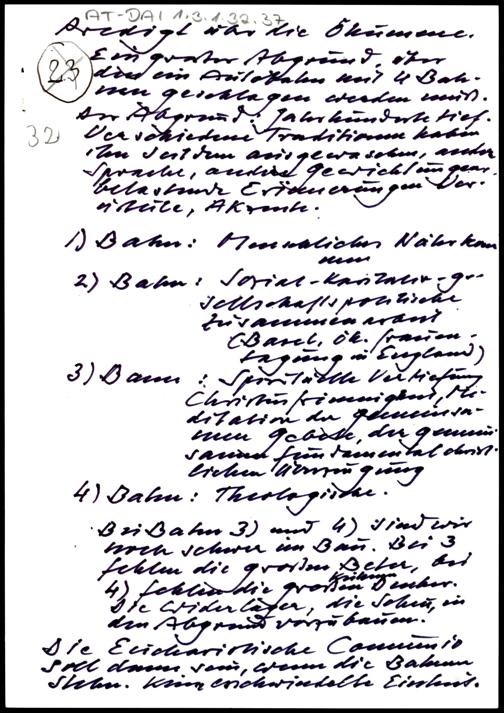 AT-DAI 1.3.1.32.37
Predigt über die Ökumene.
23
Ein großer Abgrund, über
den ein Autobahn mit 4 Bah-
nen geschlagen werden muß.
Der Abgrund: Jahrhunderte tief.
32
Verschiedene Traditionen haben
ihn seitdem ausgewaschen, andere
Sprache, andere Gewichtungen,
belastende Erinnerungen, Vor-
urteile, Akzente.
1) Bahn: Menschliches Näherkom
men
2) Bahn: Sozial-karitativ-ge-
sellschaftspolitische
Zusammenarbeit
(Basel, ök. Frauen-
tagung in England)
3) Bahn: Spirituelle Vertiefung
Christusfrömmigkeit, Me-
ditation der gemeinsa-
men Gebete, der gemein
samen fundamental christ-
lichen Überzeugung
4) Bahn: Theologische.
Bei Bahn 3) und 4) sind wir
noch schwer im Bau. Bei 3
fehlen die großen Beter, bei
4) fehlen die großen kühnen Denker.
Die Widerlager, die Scheu, in
den Abgrund vorzubauen.
Die Eucharistische Communio
soll dann sein, wenn die Bahnen
stehn. Keine erschwindelte Einheit.